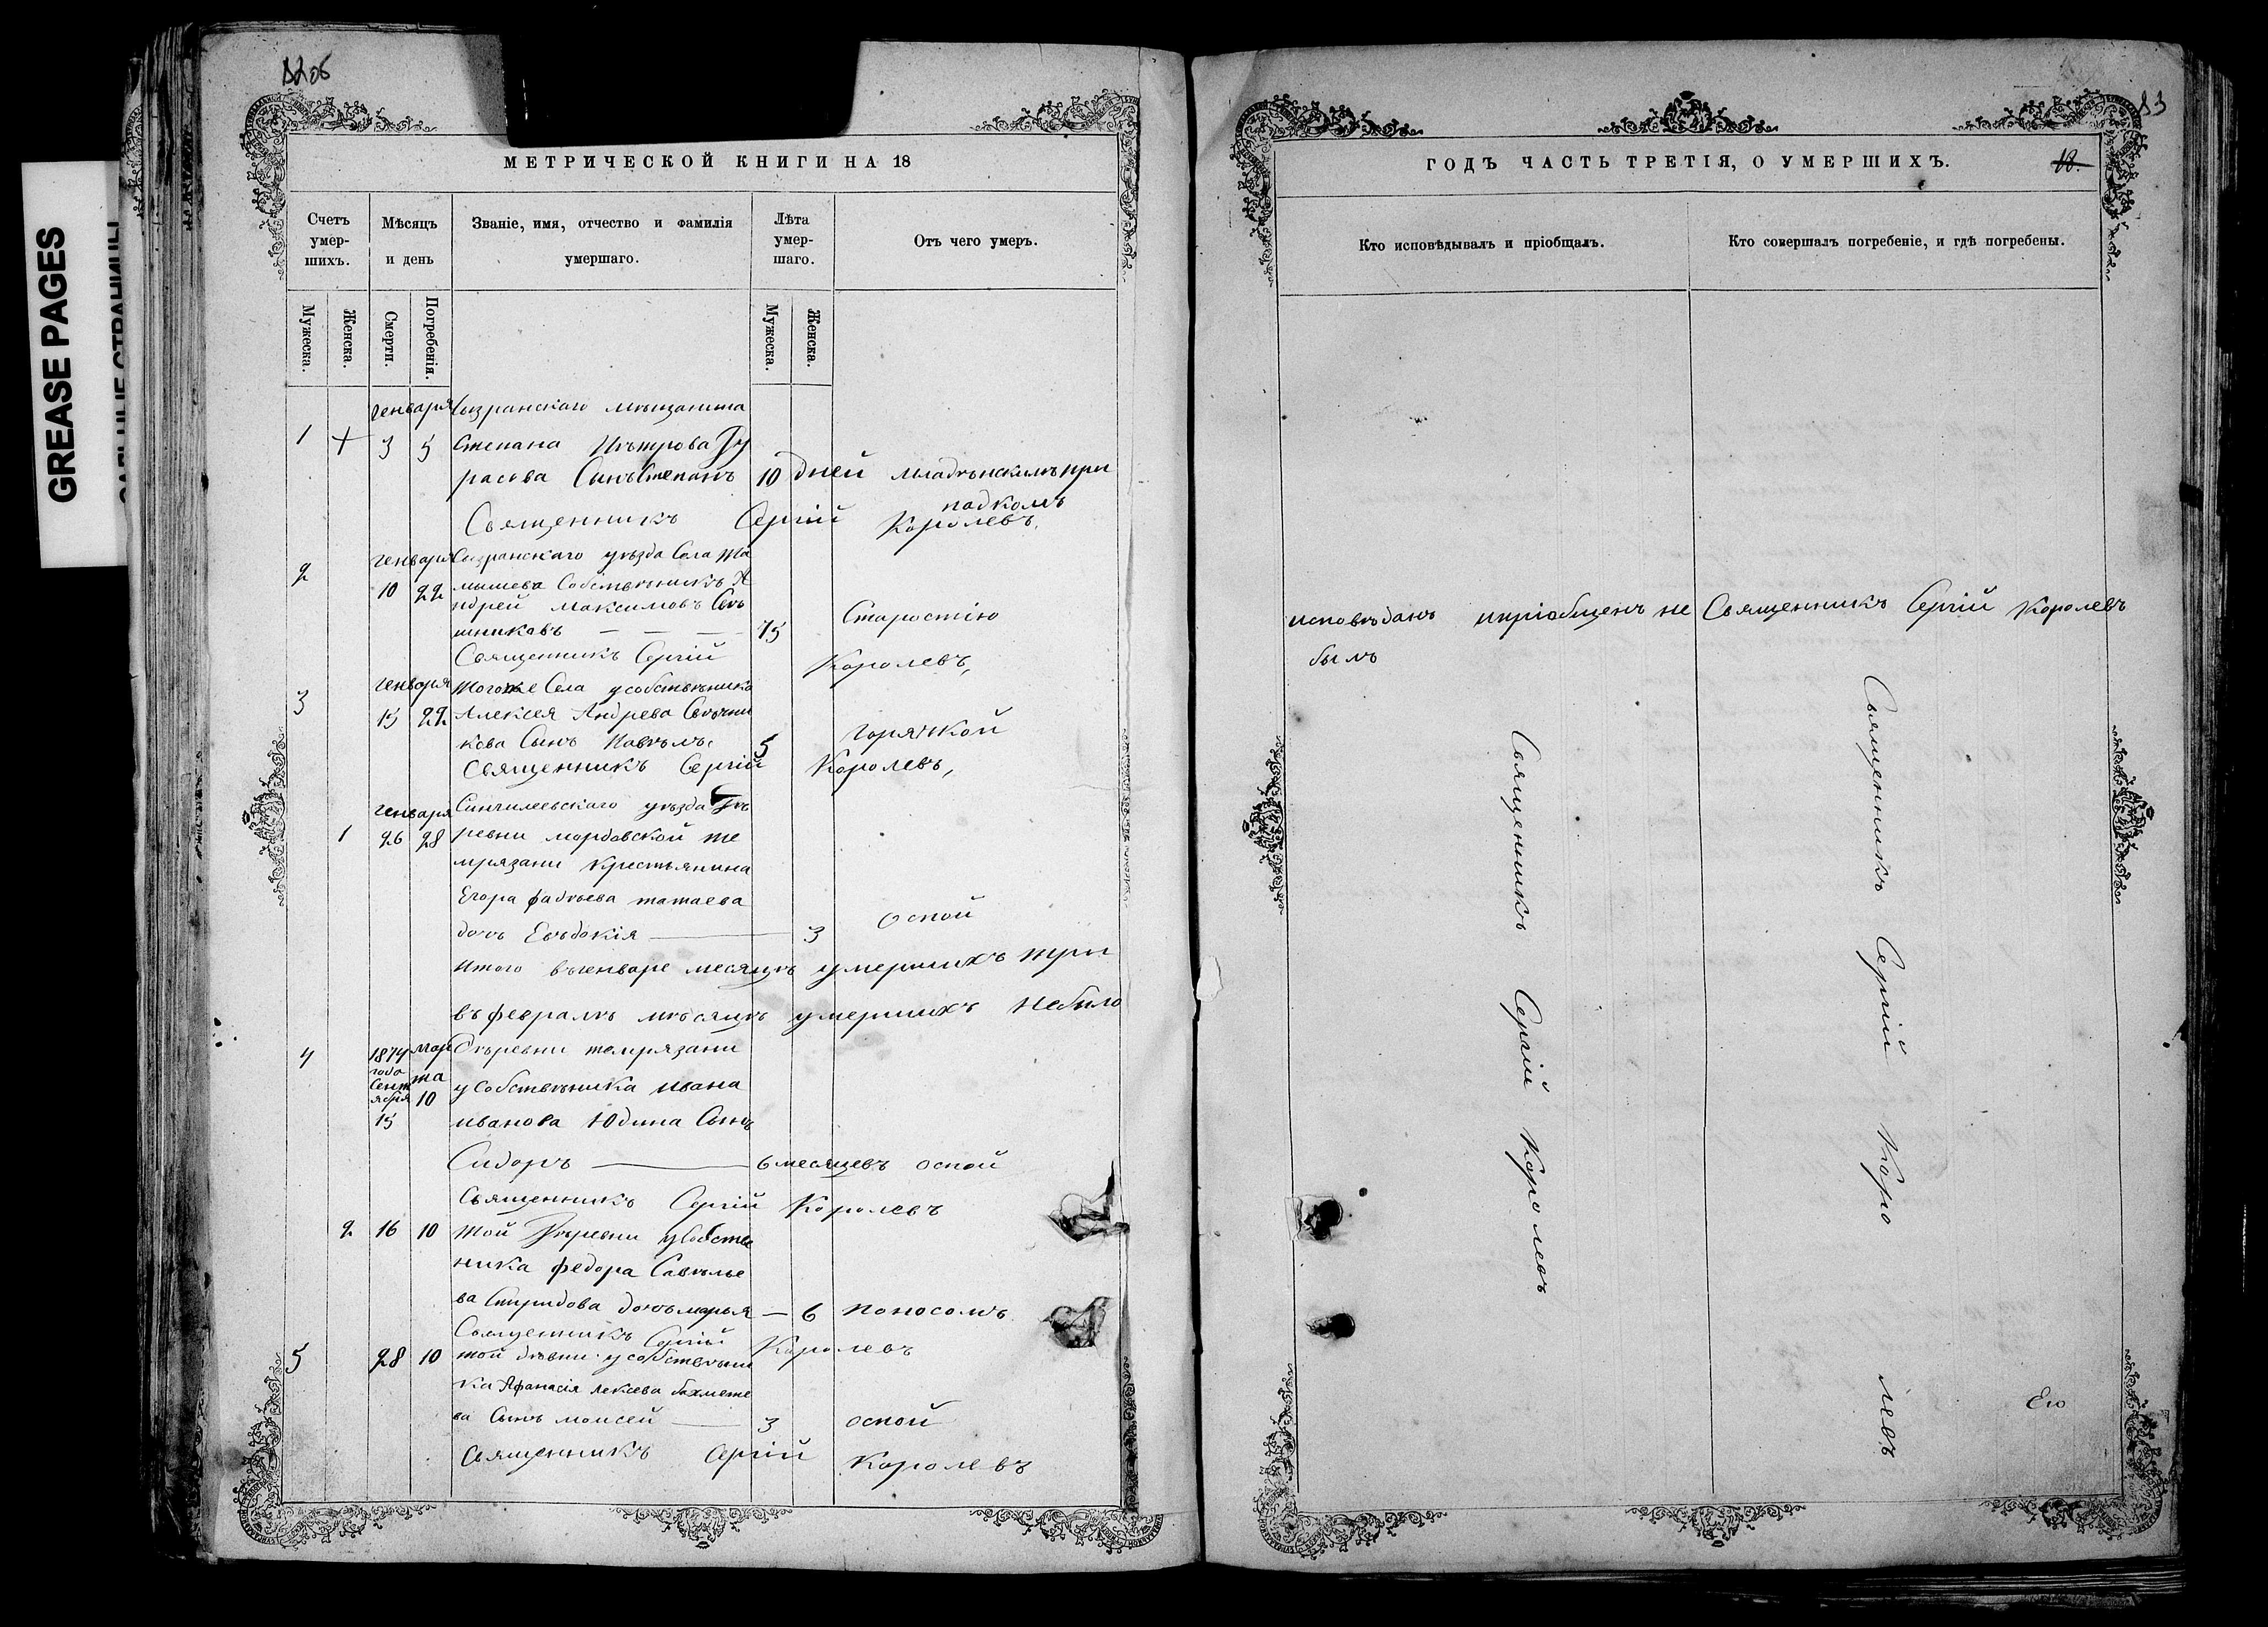 GREASE PAGES
82об
МЕТРИЧЕСКОЙ КНИГИ НА 18
Счетъ умер-шихъ.
Мѣсяцъ и день
Званіе, имя, отчество и фамилія умершаго.
Лѣта умер-шаго.
Отъ чего умеръ.
Мужеска.
Женска.
Смерти.
Погребенія.
Мужеска.
Женска.
генваря Сызранскаго мѣщанина
1 + 3 5 Степана Пѣтрова
Сынъ Степанъ 10 дней младѣнскимъ при
падкомъ
Священникъ Сергій Королевъ,
генваря Сызранскаго уѣзда Села Та
2 10 22 мышева Собствѣникъ А
ндрей Максимовъ Свѣ
шниковъ — — — 75 Старостію
Священникъ Сергій Королевъ,
генваря тогоже Села у собствѣника
3 15 22 Алексея Андрева Свѣчни
кова Сынъ Павѣлъ 5 горячкой
Священникъ Сергій Королевъ,
генваря Сингилеевскаго уѣзда дѣ
1 26 28 ревни мордовской те
мрязани Крестьянина
Егора фадѣева татаева
дочь Евъдокія — 3 оспой
Итого въ генваре месяцѣ умершихъ три
въ февралѣ мѣсяцѣ умершихъ небыло
4 1874 года Сентября 15 марта 10 Дѣревни темрязани
у Собствѣника ивана
иванова Юдина Сынъ
Сидоръ — 6 месяцевъ оспой
Священникъ Сергій Королевъ
2 16 10 той Дѣревни у Собстве
ника федора Савѣлье
ва Спиридова дочь марья — 6 поносомъ
Священникъ Сергій Королевъ
5 28 10 той дѣвни у собствѣни
ка Афанасія лексева бахмете
ва Сынъ моисей — 3 оспой
Священникъ Сергій Королевъ
83
ГОДЪ ЧАСТЬ ТРЕТІЯ, О УМЕРШИХЪ.
18.
Кто исповѣдывалъ и пріобщалъ.
Кто совершалъ погребеніе, и гдѣ погребены.
исповѣданъ ипріобщенъ не Священникъ Сергій Королевъ
былъ
Священникъ Сергій Королевъ
Священникъ Сергій Коро
левъ
Ею